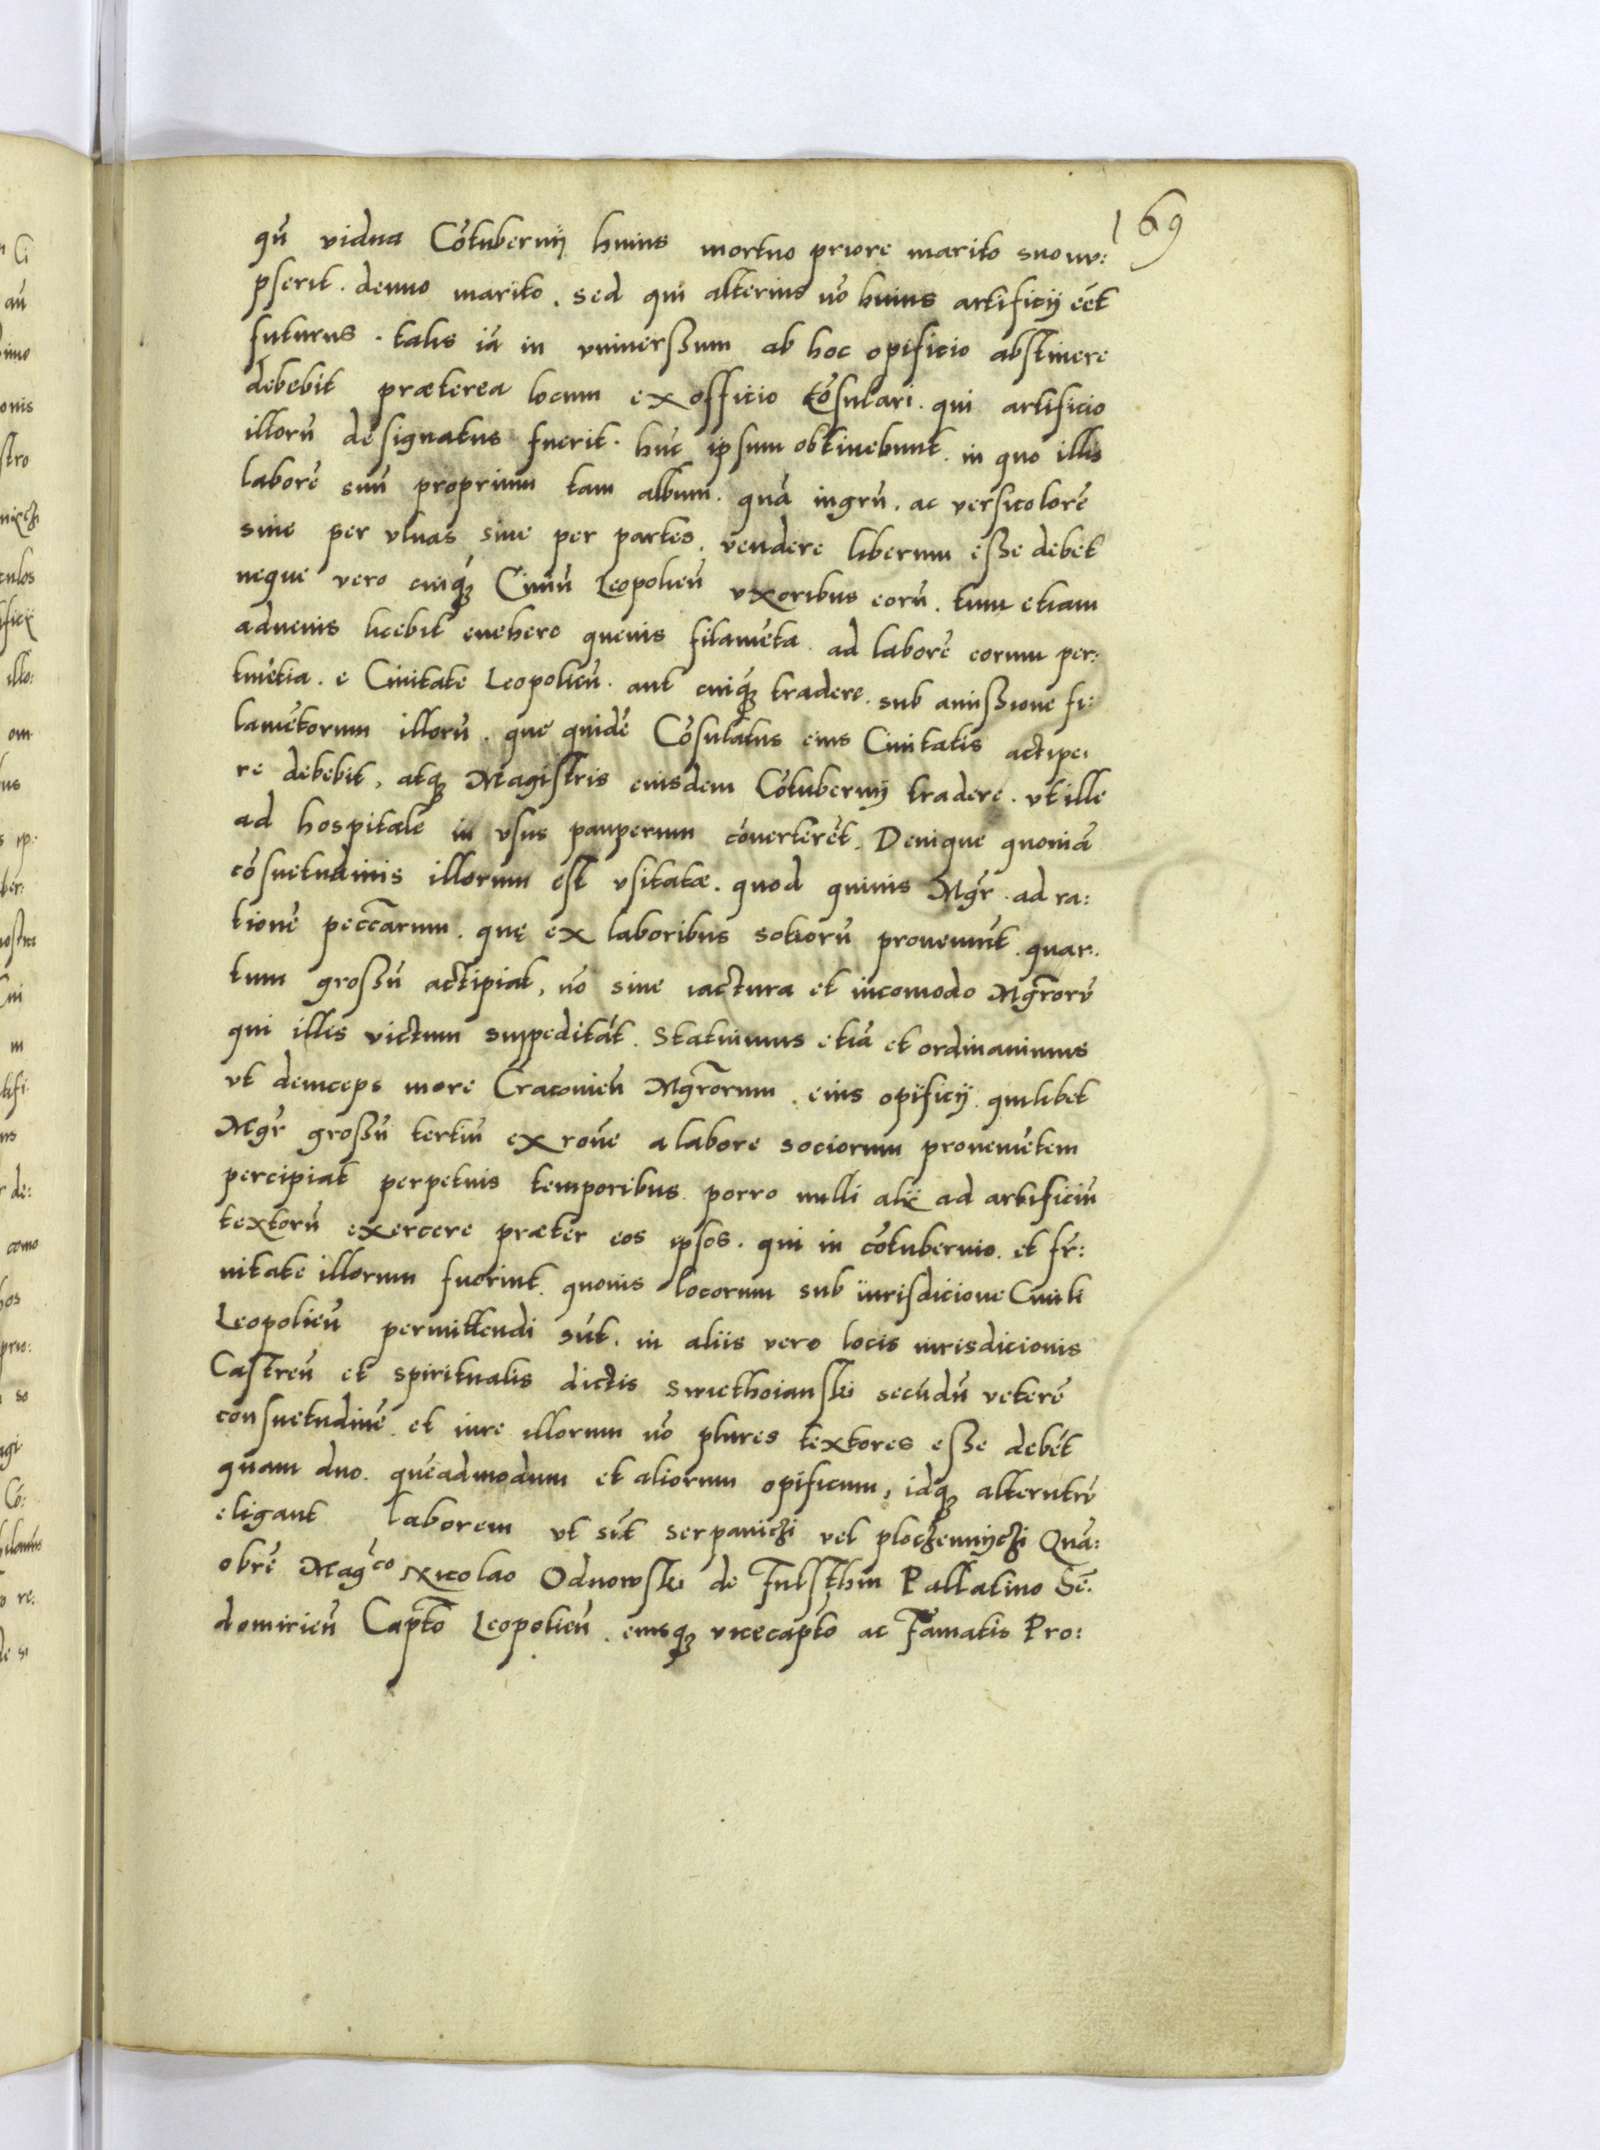 169
qn̄ vidua Cōtubernij huius mortuo priore marito suo nu:
pserit. denuo marito. sed qui alterius nō huius artificij eēt
futurus. talis iā in vniuerßum ab hoc opificio abstinere
debebit præterea locum ex officio Cōsulari. qui artificio
illorū designatus fuerit. hūc ipsum obtinebunt. in quo illis
laborē suū proprium tam album. quā nigrū. ac versicolorē
siue per vlnas siue per partes. vendere liberum eße debet
neque vero cuiqȝ Ciuiū Leopolień vxoribus eorū. tum etiam
aduenis licebit euehere queuis filamēta ad laborē eorum per:
tinētia. e Ciuitate Leopolień. aut cuiqȝ tradere. sub amißione fi:
lamētorum illorū. que quidē Cōsulatus eius Ciuitatis accipe:
re debebit, atqȝ Magistris eiusdem Cōtubernij tradere. vt ille
ad hospitale in vsus pauperum cōuerterēt. Denique quoniā
cōsuetudinis illorum est vsitatæ. quod quiuis Mgr̄. ad ra:
tionē peccarum. quę ex laboribus sotiorū proueniūt. quar:
tum großū accipiat, nō sine iactura et incomodo Mgr̄orū
qui illis victum suppeditāt. Statuimus etiā et ordinauimus
vt deinceps more Cracouień Mgr̄orum. eius opificij quilibet
Mgr̄ großū tertiū ex rone a labore sociorum prouenietem
percipiat perpetuis temporibus porro nulli alij ad artificiū
textorū exercere præter eos ipsos. qui in cōtubernio. et fr̄:
nitate illorum fuerint. quouis locorum sub iurisdicione Ciuili
Leopolień permittendi sūt. in aliis vero locis iurisdicionis
Castreń et spiritualis dictis swiethoianski secūdū veterē
consuetudinē et iure illorum nō plures textores eße debēt
quam duo. quēadmodum et aliorum opificum, idqȝ alterutrū
eligant laborem vt sīt serpaniczi vel ploczennyczi Quā:
obrē Magco Nicolao Odnowski de Fulsthin Pallatino Sē:
domirień Capto Leopolień. eiusqȝ vicecapto ac Famatis Pro: